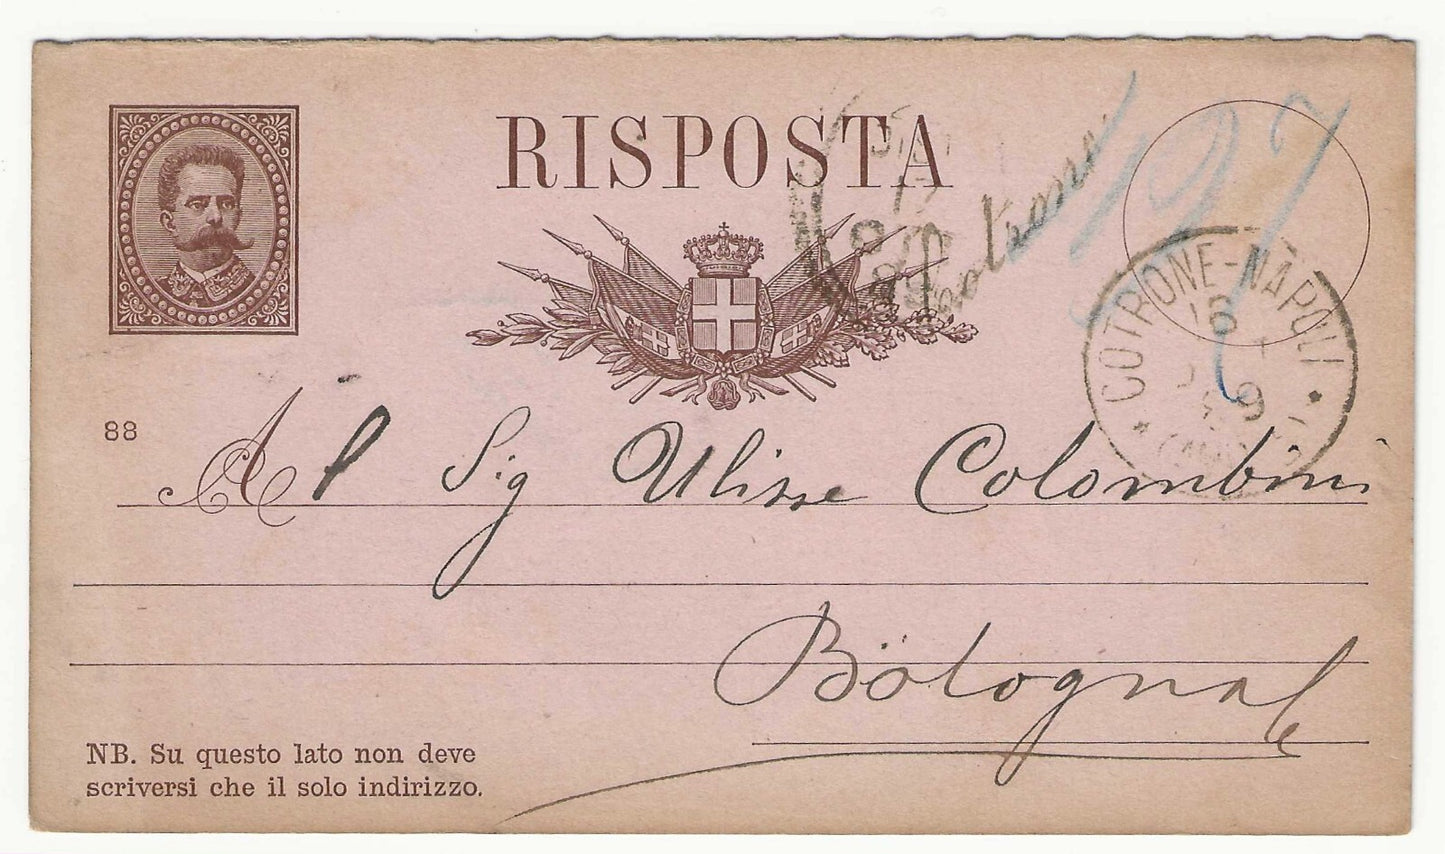 RISPOSTA
Cotrone.
127
COTRONE-NÀPOLI
16
9
88
Al Sig Ulisse Colombini
Bologna
NB. Su questo lato non deve
scriversi che il solo indirizzo.